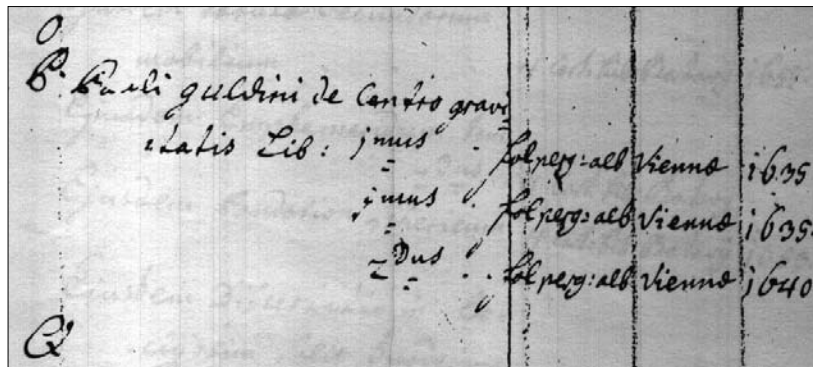 O.
P. Pauli Guldini de Centro gravi
tatis Lib: jmus . fol perg: alb Viennæ 1635
jmus . fol perg: alb Viennæ 1635
2Dus . . fol perg: alb Viennæ 1640
Q